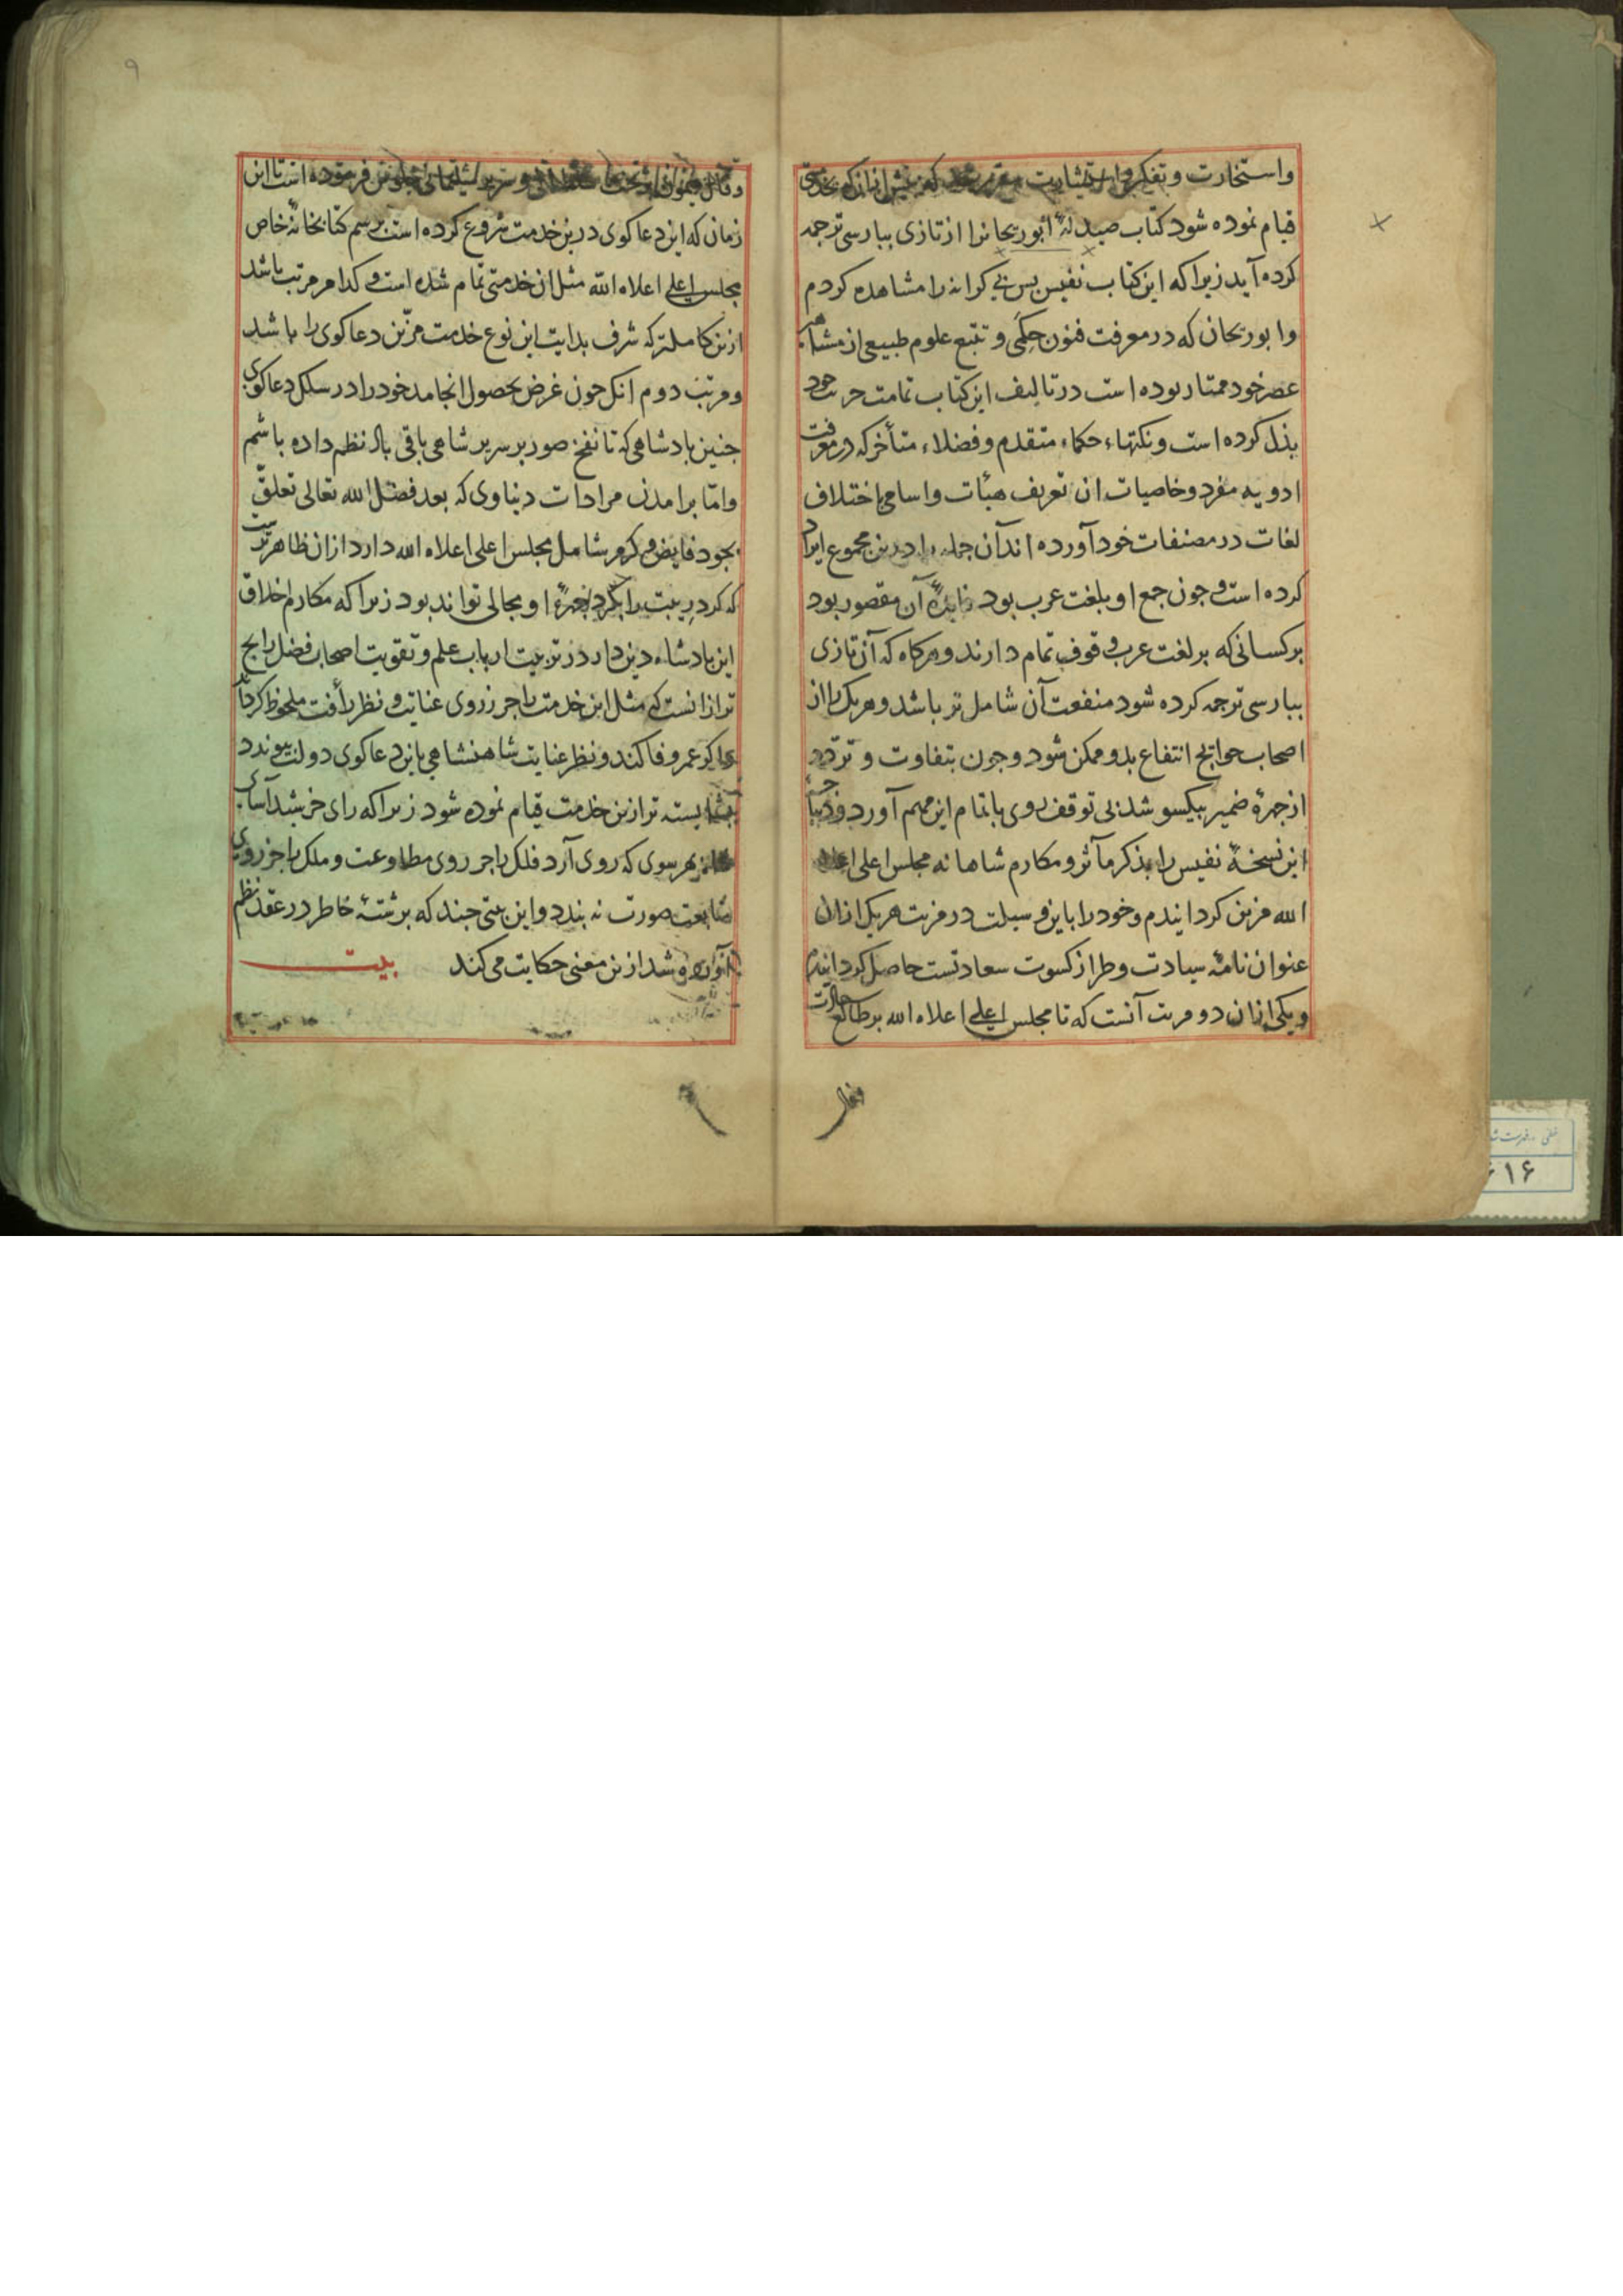 واستخارت و تفکر و استشارت که پیش ازان که بخدمتی
قیام نموده شود کتاب صیدلهٔ ابوریحانرا از تازی بپارسی ترجمه
کرده آید زیرا که این کتاب نفیس بس بی کرانه را مشاهده کردم
وابوریحان که در معرفت فنون حکمی و تتبع علوم طبیعی از مشاهیر
عصر خود ممتاز بوده است در تالیف این کتاب تمامت حرث خود
بذل کرده است و نکتهاء حکماء متقدم و فضلاء متأخر که در معرفت
ادویه مفرد و خاصیات ان تعریف هیأت و اسامی باختلاف
لغات در مصنفات خود آورده اند آن جمله را درین مجموع ایراد
کرده است و جون جمع او بلغت عرب بود فایدهٔ آن مقصور بود
بر کسانی که بر لغت عرب وقوف تمام دارند و هرکاه که آن تازی
بپارسی ترجمه کرده شود منفعت آن شامل تر باشد و هر یک را از
اصحاب حوایج انتفاع بدو ممکن شود و جون بتفاوت و تردد
از جهرهٔ ضمیر بیکسو شد بی توقف روی باتمام این مهم آورد و دیباجهٔ
این نسخهٔ نفیس را بذکر مآثر و مکارم شاهانه مجلس اعلی اعلاه
الله مزین کردانیدم و خود را باین وسیلت دو مزیت هر یک ازان
عنوان نامهٔ سیادت و طراز کسوت سعادتست حاصل کردانیدم
و یکی ازان دو مزیت آنست که تا مجلس اعلی اعلاه الله بر طالع
۹
فرموده است تا این
زمان که این دعاکوی درین خدمت شروع کرده است برسم کتابخانهٔ خاص
مجلس اعلی اعلاه الله مثل ان خدمتی تمام شده است و کدام مرتبت باشد
ازین کاملتر که شرف بدایت این نوع خدمت مزین دعاکوی را باشد
و مرتبت دوم انک جون غرض بحصول انجامد خود را در سلک دعاکوی
جنین پادشاهی که تا نفخ صور بر سریر شاهی باقی باد نظم داده باشم
واما برامدن مرادات دنیاوی که بعد فضل الله تعالی تعلق
بجود فایض و کرم شامل مجلس اعلی اعلاه الله دارد ازان ظاهرترست
که کرد ریبت را بکرد او مجالی تواند بود زیرا که مکارم اخلاق
این پادشاه دین دار در تربیت ارباب علم و تقویت اصحاب فضل رایج
تر ازانست که مثل این خدمت را جز از روی عنایت و نظر رأفت ملحوظ کرداند
کر عمر وفا کند و نظر عنایت شاهنشاهی باین دعاکوی دولت پیوندد
شایسته تر ازین خدمت قیام نموده شود زیرا که رای خرشید آسای
بهر سوی که روی آرد فلک را جز روی مطاوعت و ملک را جز روی
متابعت صورت نه بندد و این بیتی جند که بر شتهٔ خاطر در عقد نظم
شد ازین معنی حکایت می کند بیت
۶۱۶